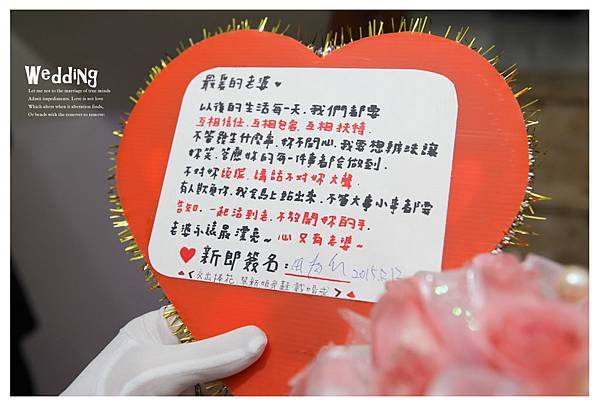 Wedding
Let me not to the marriage of true minds
Admit impediments. Love is not love
Which alters when it alteration finds,
Or bends with the remover to remove:
最愛的老婆♥
以後的生活每一天,我們都要
互相信任.互相包容.互相扶持.
不管發生什麼事.妳不開心.我要想辦法讓
妳笑.答應妳的每一件事都會做到.
不對妳說謊.講話不對妳大聲.
有人欺負妳.我會馬上站出來.不管大事小事都要
告知.一起活到老.不放開妳的手.
老婆永遠最漂亮~心又有老婆~
♥新郎簽名: 2015.5.17